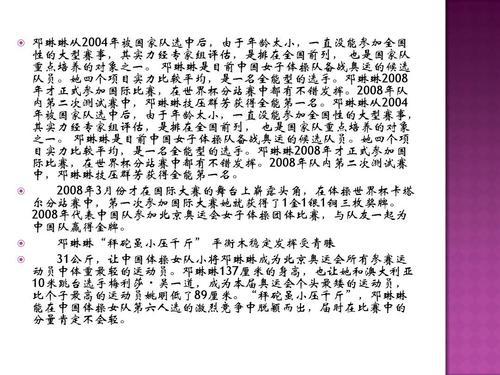 邓琳琳从2004年被国家队选中后，由于年龄太小，一直没能参加全国
性的大型赛事，其实力经专家组评估，是排在全国前列，也是国家队
重点培养的对象之一。 邓琳琳是目前中国女子体操队备战奥运的候选
队员。她四个项目实力比较平均，是一名全能型的选手。邓琳琳2008
年才正式参加国际比赛，在世界杯分站赛中都有不错发挥。2008年队
内第二次测试赛中，邓琳琳技压群芳获得全能第一名。邓琳琳从2004
年被国家队选中后，由于年龄太小，一直没能参加全国性的大型赛事，
其实力经专家组评估，是排在全国前列， 也是国家队重点培养的对象
之一。 邓琳琳是目前中国女子体操队备战奥运的候选队员。她四个项
目实力比较平均，是一名全能型的选手。邓琳琳2008年才正式参加国
际比赛，在世界杯分站赛中都有不错发挥。2008年队内第二次测试赛
中，邓琳琳技压群芳获得全能第一名。
2008年3月份才在国际大赛的舞台上崭露头角，在体操世界杯卡塔
尔分站赛中，第一次参加国际大赛她就获得了1金1银1铜三枚奖牌。
2008年代表中国队参加北京奥运会女子体操团体比赛，与队友一起为
中国队赢得金牌。
邓琳琳“秤砣虽小压千斤” 平衡木稳定发挥受青睐
31公斤，让中国体操女队小将邓琳琳成为北京奥运会所有参赛运
动员中体重最轻的运动员。邓琳琳137厘米的身高，也让她和澳大利亚
10米跳台选手梅利莎·吴一道，成为本届奥运会个头最矮的运动员，
比个子最高的运动员姚明低了89厘米。“秤砣虽小压千斤”，邓琳琳
能在中国体操女队第六人选的激烈竞争中脱颖而出，届时在比赛中的
分量肯定不会轻。